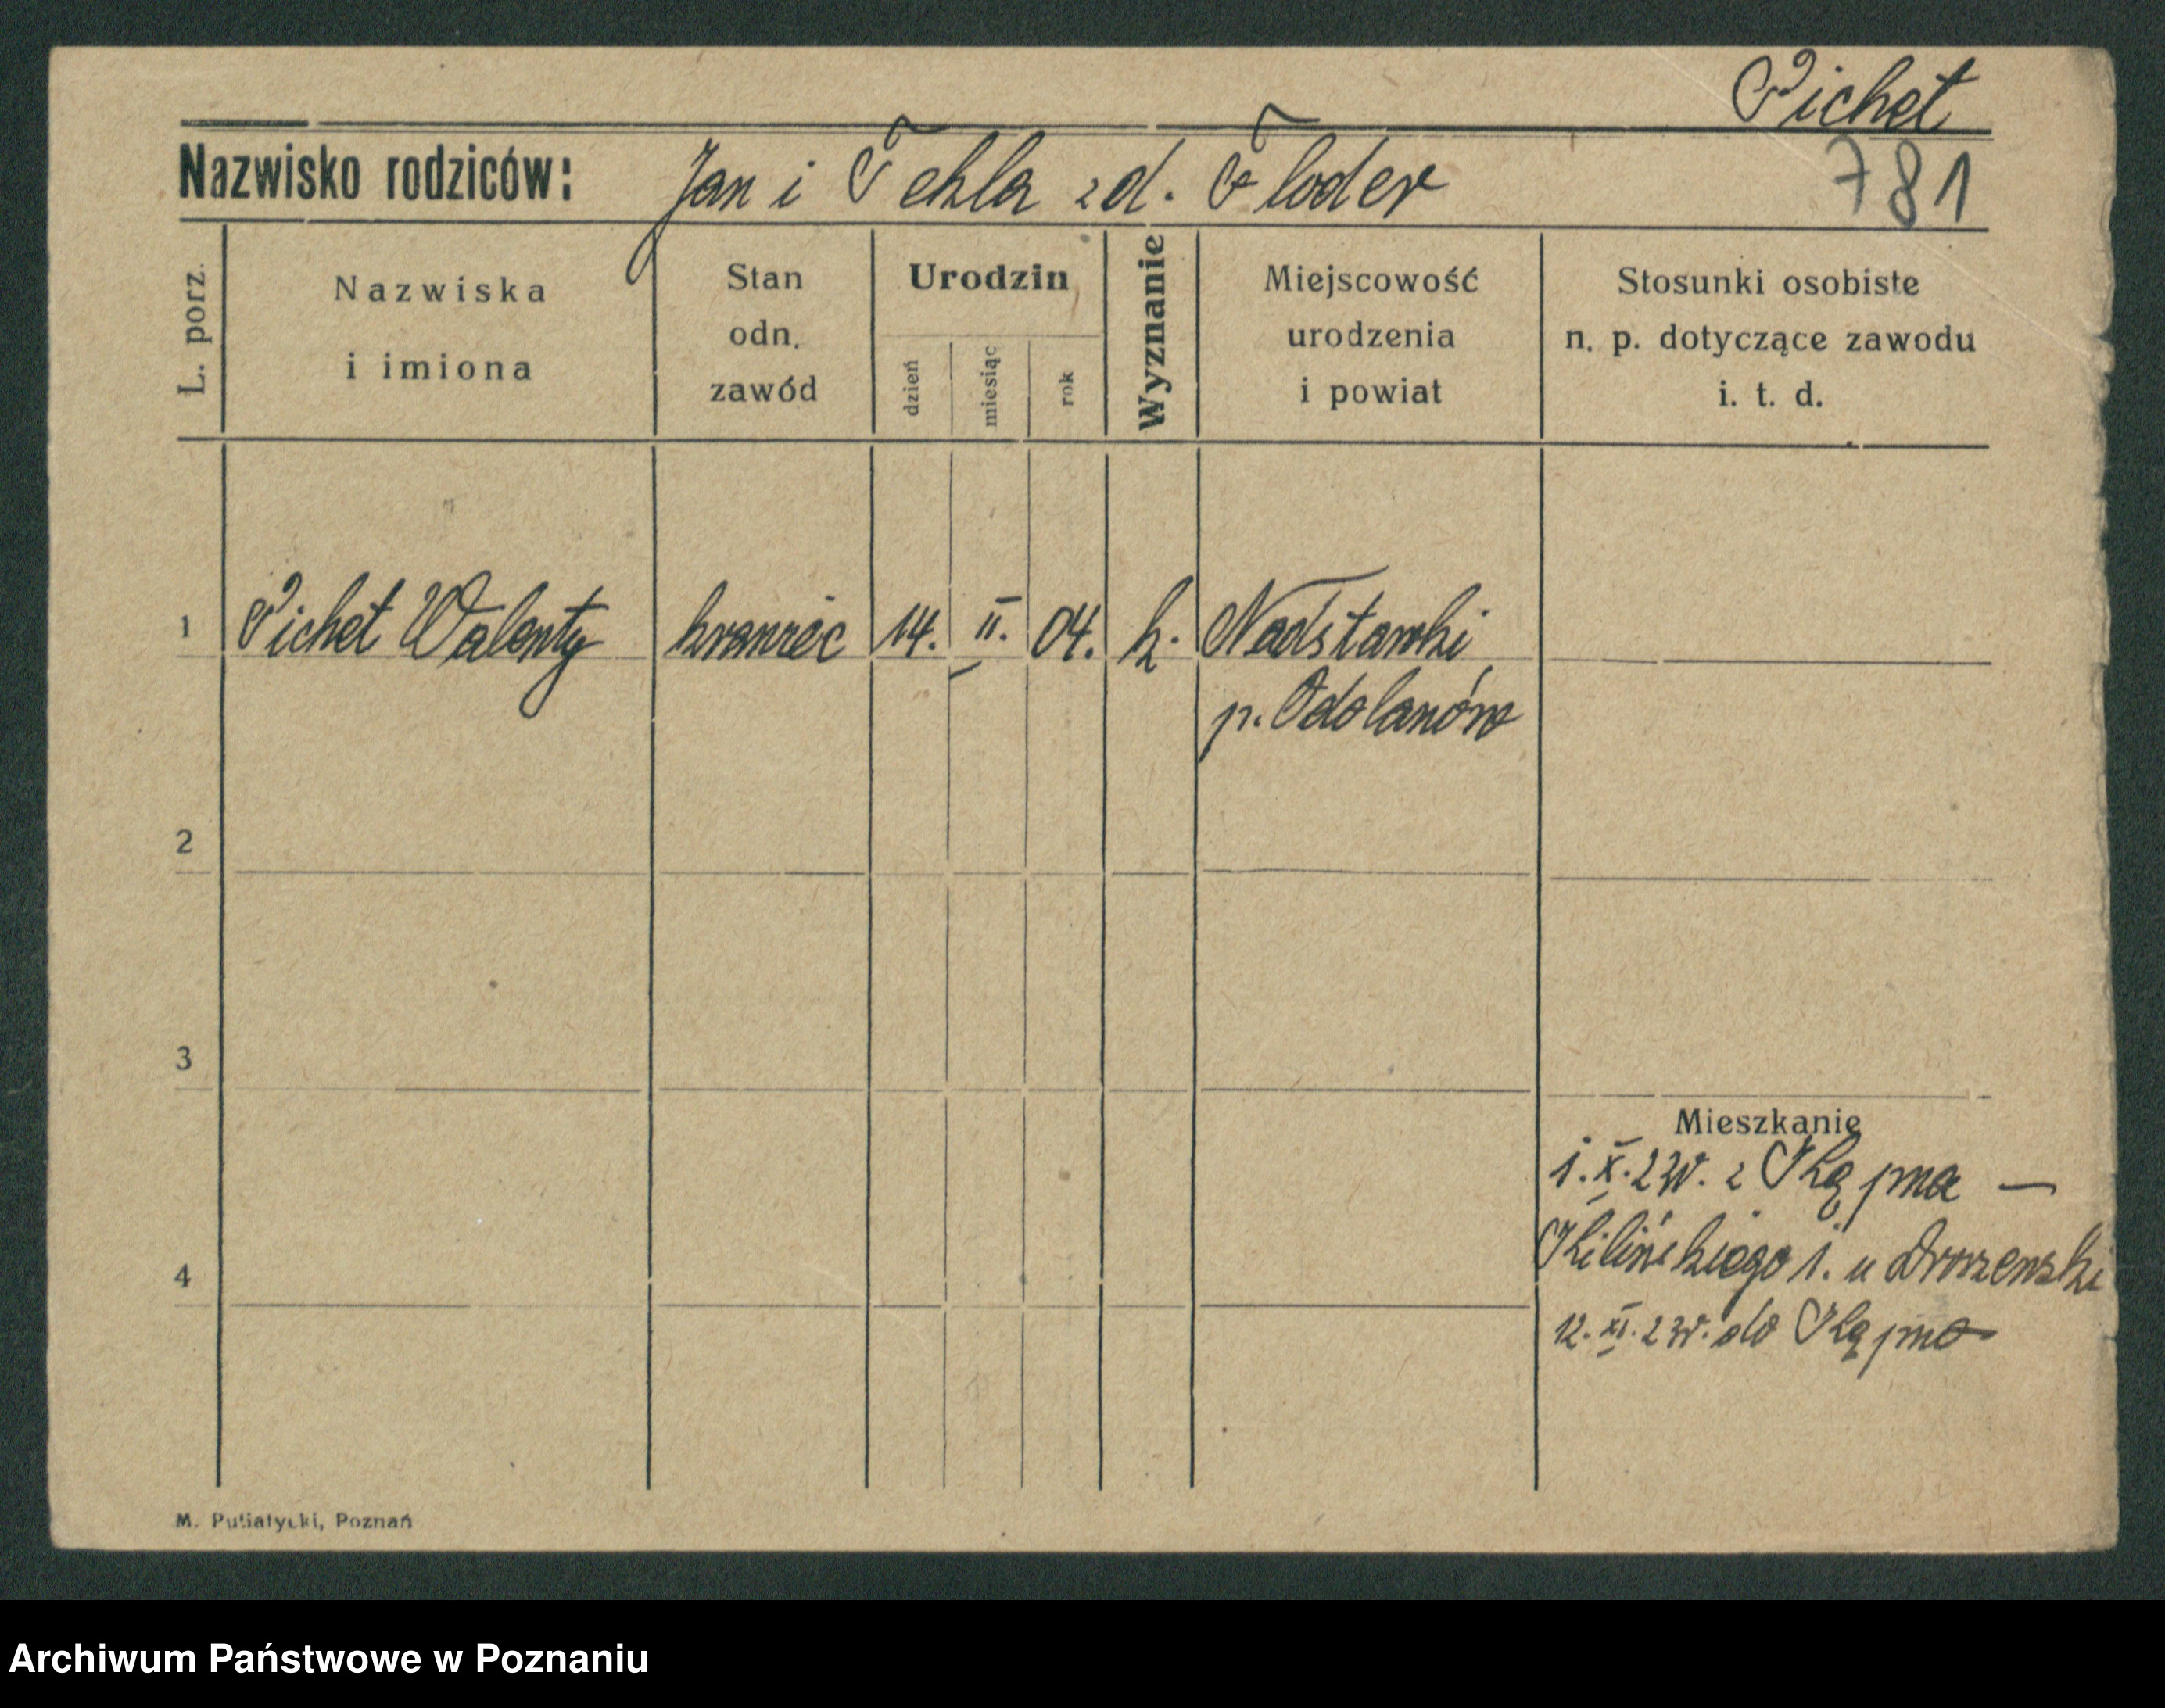 Pichet
781
Nazwisko rodziców: Jan i Tekla zd. Floder
L. porz.
Nazwiska i imiona
Stan odn. zawód
Urodzin
dzień
miesiąc
rok
Wyznanie
Miejscowość urodzenia i powiat
Stosunki osobiste n. p. dotyczące zawodu i. t. d.
1 Pichet Walenty krawiec 14. II. 04. k. Nadstawki
p. Odolanów
2
3
Mieszkanie
1. X. 23r. z Kępna —
Kilińskiego 1. u
4
12. XI. 23r. do Kępna
M. Putiatycki, Poznań
Archiwum Państwowe w Poznaniu